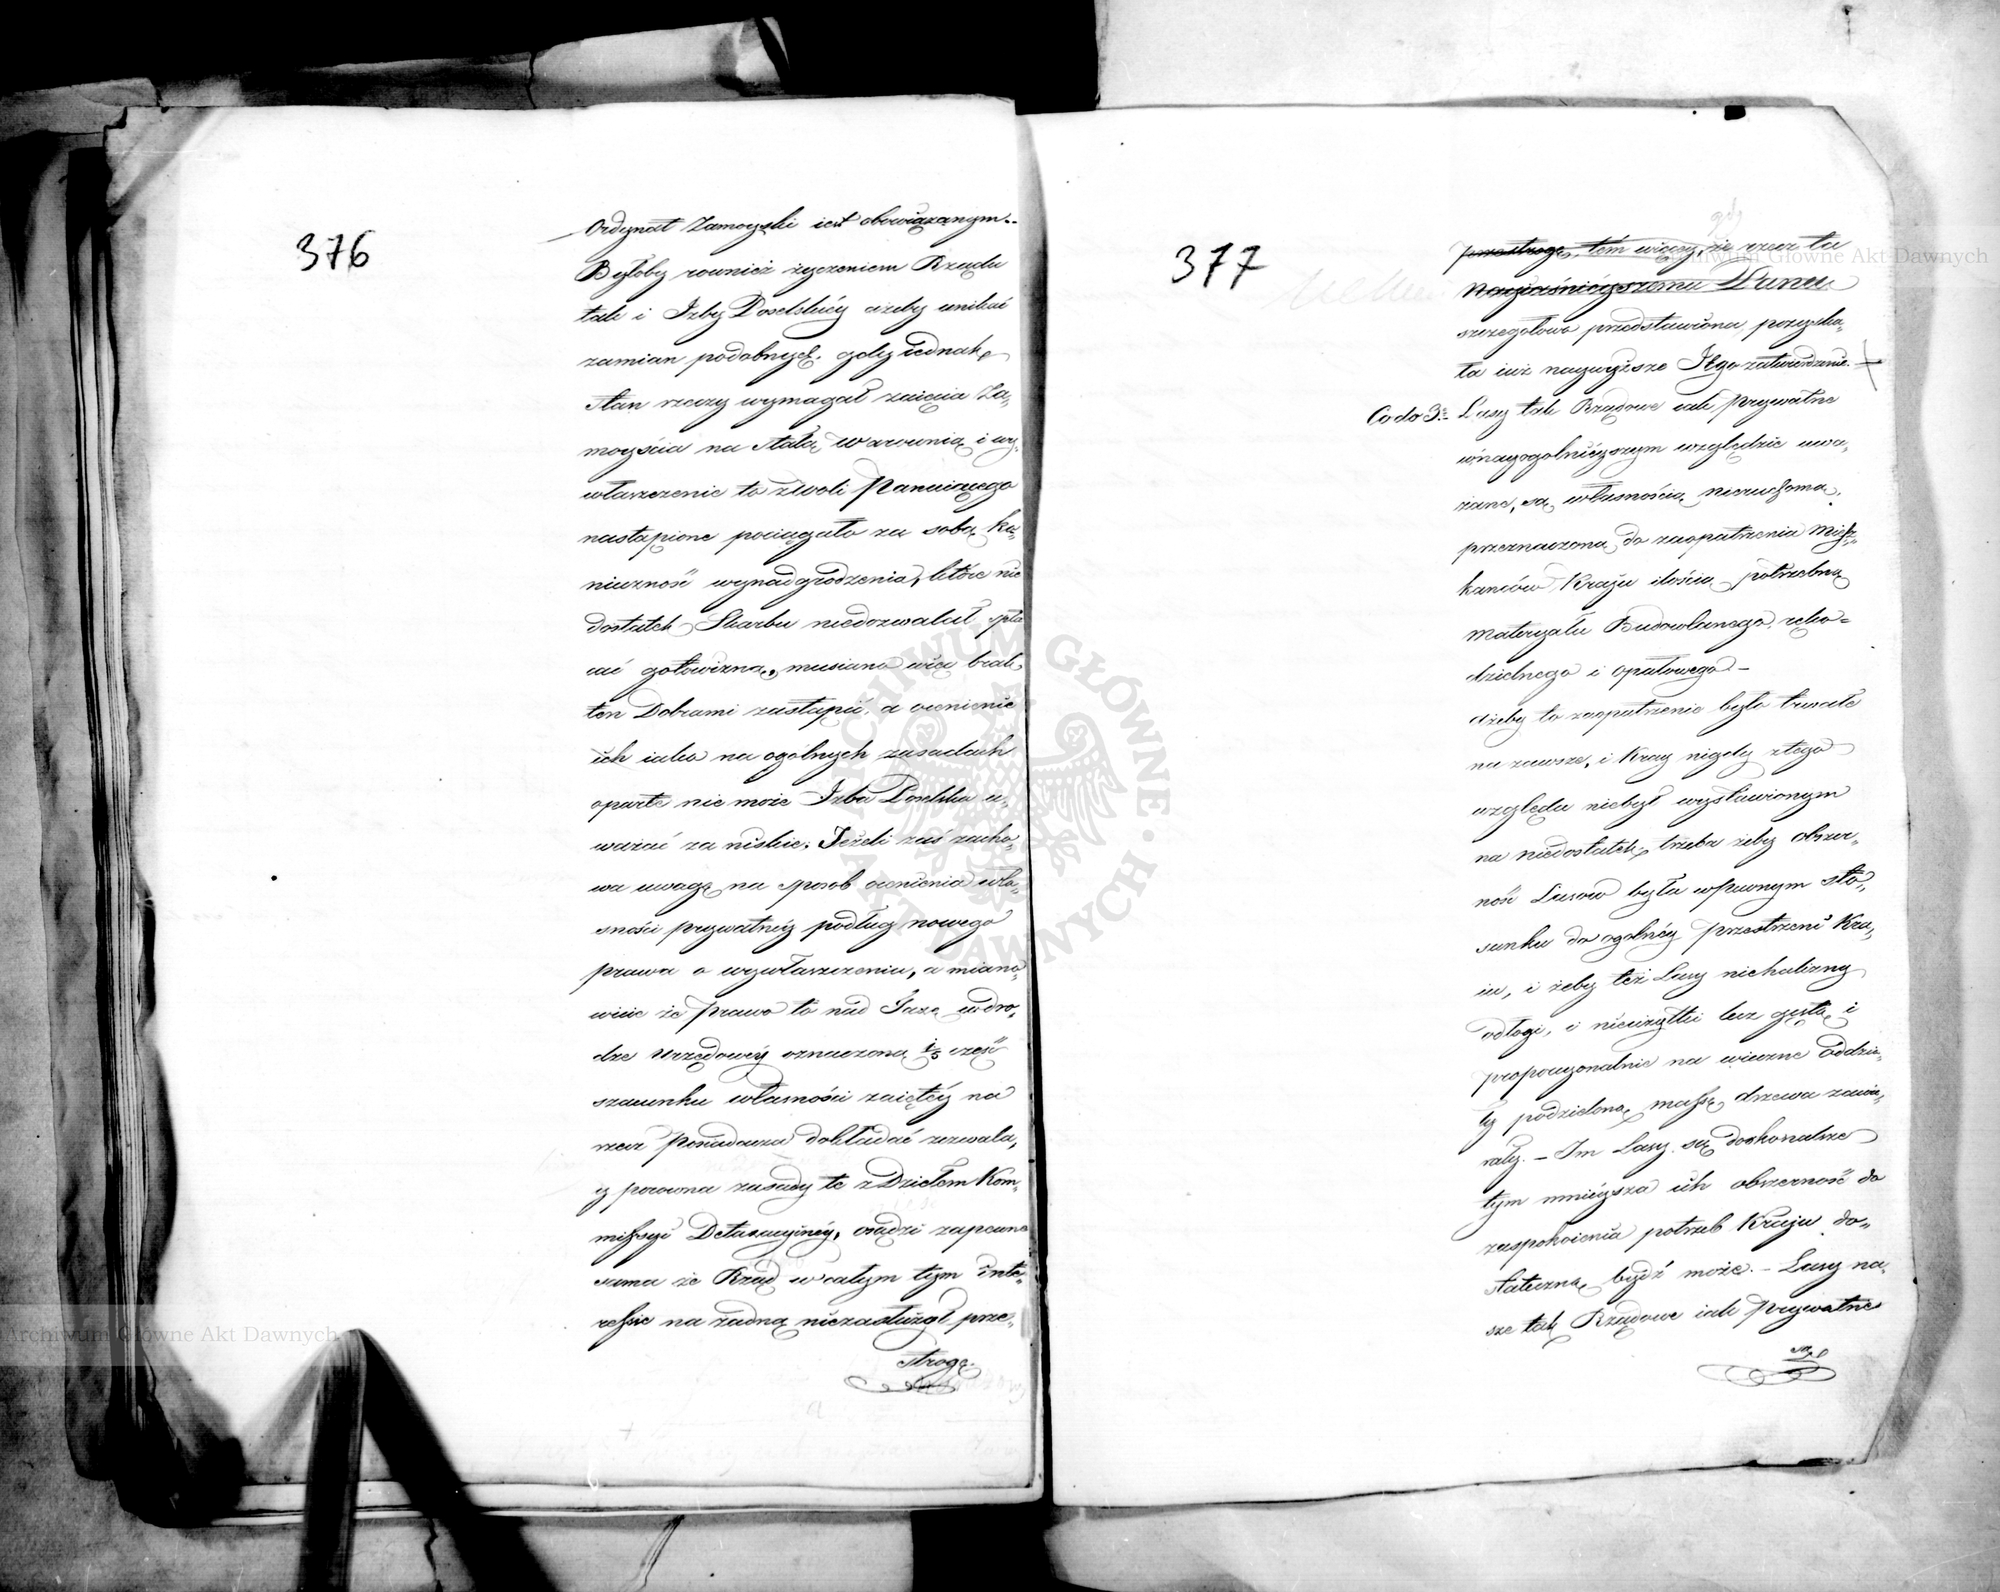 376
Ordynat Zamoyski iest obowiązanym.
Byłoby rownież życzeniem Rządu
iak i Izby Poselskiéy ażeby unikać
zamian podobnych, gdy iednak
stan rzeczy wymagał zaięcia Za„
mościa na stałą Warownią i wy„
właszczenie to z woli Panuiącego
nastąpione pociągało za sobą ko„
nieczność wynadgrodzenia, które nie
dostatek Skarbu niedozwalał spła
cać gotowizną, musiano więc brak
ten Dobrami zastąpić, a ocenienie
ich iako na ogólnych zasadach
oparte nie może Izba Poselska u„
ważać za niskie. Jeżeli zaś zacho„
wa uwagę na sposob ocenienia wła„
sności prywatnéy podług nowego
prawa o wywłaszczeniu, a miano„
wicie że prawo to nad Taxę w dro„
dze Urzędowéy oznaczoną 1/5 część
szacunku własności zaiętéy na
rzecz Posiadacza dokładać zezwala,
y porowna zasady te z Dziełem Kom„
missyi Detaxacyinéy, osądzi zapewne
sama że Rząd w całym tym inte„
ressie na żadną niezasłużył prze„
strogę.
377
gdy
przestrogę, tém więcéy, że rzecz ta
Nayiaśnieyszemu Panu
szczegołowo przedstawiona, pozyska„
ła iuż naywyższe Jego zatwierdzenie.
Co do 3º Lasy tak Rządowe iak prywatne
w nayogolnieyszym względzie uwa„
żane, są własnością nieruchomą,
przeznaczoną do zaopatrzenia Miesz„
kańców Kraju ilością potrzebną
Materyału Budowlanego, ręko„
dzielnego i opałowego —
ażeby to zaopatrzenie było trwałe
na zawsze, i Kray nigdy z tego
względu niebył wystawionym
na niedostatek, trzeba żeby obszer„
ność Lasów była w pewnym sto„
sunku do ogolnéy przestrzeni Kra„
iu, i żeby też Lasy nie halizny
odłogi, i nieużytki lecz gęstą i
proporcyonalnie na wieczne oddzia„
ły podzieloną massę drzewa zawie„
rały. — Im Lasy są doskonalsze
tym mnieysza ich obszerność do
zaspokoienia potrzeb Kraju do„
stateczną bydź może. — Lasy na„
sze tak Rządowe iak prywatne
Archiwum Główne Akt Dawnych
Archiwum Główne Akt Dawnych
ARCHIWUM GŁÓWNE AKT DAWNYCH